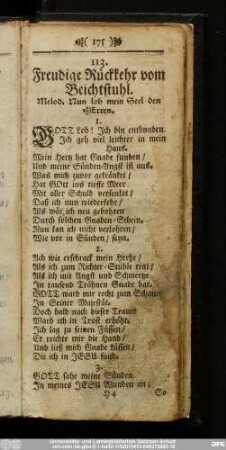 ( 175 )
113.
Freudige Rückkehr vom
Beichtstuhl.
Melod. Nun lob mein Seel den
HErren.
1.
GOTT Lob! Ich bin entbunden.
Ich geh viel leichter in mein
Haus.
Mein Hertz hat Gnade funden/
Und meine Sünden-Angst ist aus.
Was mich zuvor gekräncket/
Hat GOtt ins tieffe Meer
Mit aller Schuld versencket
Daß ich nun wiederkehre/
Als wär ich neu gebohren
Durch solchen Gnaden-Schein.
Nun kan ich nicht verlohren/
Wie vor in Sünden/ seyn.
2.
Ach wie erschrack mein Hertze/
Als ich zum Richter-Stuhle trat/
Als ich mit Angst und Schmertze
In tausend Thränen Gnade bat.
GOTT ward mir recht zum Schauer
In Seiner Majestät.
Doch bald nach dieser Trauer
Ward ich in Trost erhöht.
Ich lag zu seinen Füssen/
Er reichte mir die Hand/
Und ließ mich Gnade küssen/
Die ich in JESU fand.
3.
GOTT sahe meine Sünden
In meines JESU Wunden an;
H4 So